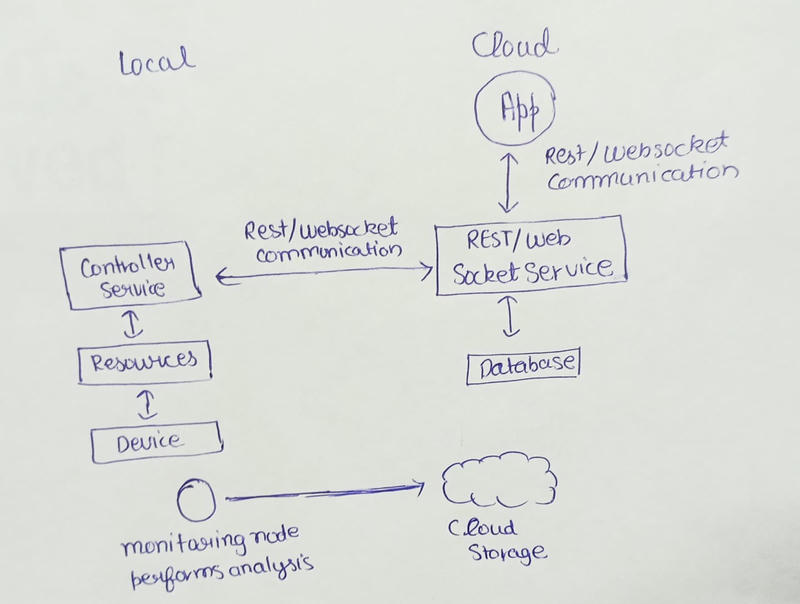 Local
Cloud
App
Rest/Websocket
communication
Rest/Websocket
communication
REST/Web
Socket Service
Controller
Service
Resources
Database
Device
monitoring node
performs analysis
Cloud
Storage